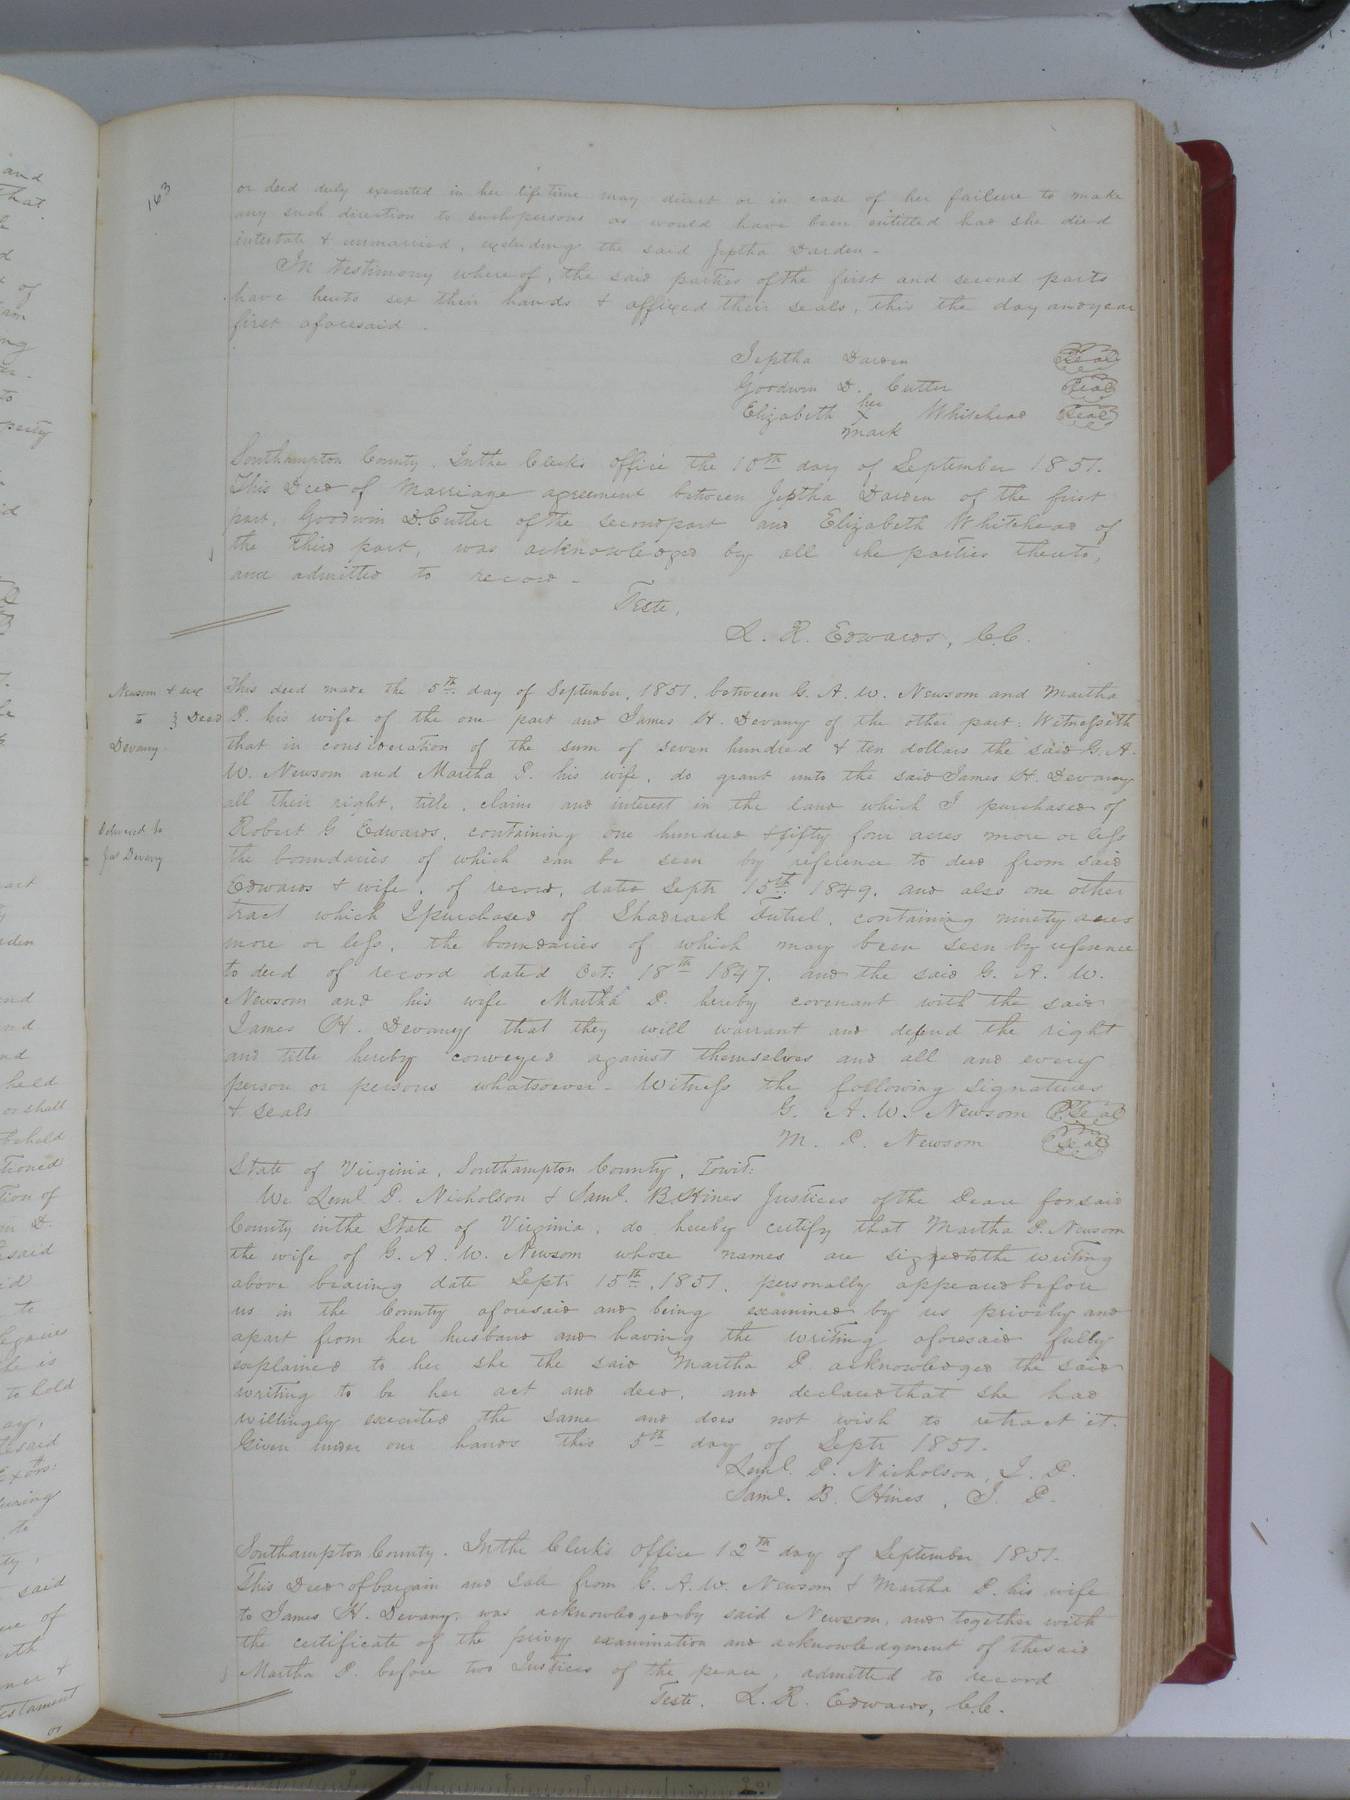 163
or deed duly executed in her lifetime may direct or in case of her failure to make
any such direction to such persons as would have been entitled had she died
intestate & unmarried, excluding the said Jeptha Darden -
In testimony whereof, the said parties of the first and second parts
have hereto set their hands & affixed their seals, this the day and year
first aforesaid.
Jeptha Darden Seal
Goodwin D. Cutler Seal
Elizabeth her x mark Whitehead Seal
Southampton County. In the Clerks office the 10th day of September 1851.
This Deed of Marriage agreement between Jeptha Darden of the first
part, Goodwin D. Cutler of the second part and Elizabeth Whitehead of
the third part, was acknowledged by all the parties thereto,
and admitted to record -
Teste,
L. R. Edwards, C.C.
Newsom & uxe
to } Deed
Devany
This deed made the 5th day of September, 1851, between G. A. W. Newsom and Martha
P. his wife of the one part and James H. Devany of the other part: Witnesseth
that in consideration of the sum of seven hundred & ten dollars the said G. A.
W. Newsom and Martha P. his wife, do grant unto the said James H. Devany
all their right, title, claim and interest in the land which I purchased of
Delivered to
Jas Devany
Robert G Edwards, containing one hundred & fifty four acres more or less
the boundaries of which can be seen by reference to deed from said
Edwards & wife, of record, dated Septr 15th 1849, and also one other
tract which I purchased of Shadrack Futrel, containing ninety acres
more or less, the boundaries of which may been seen by reference
to deed of record dated Oct: 18th 1847. and the said G. A. W.
Newsom and his wife Martha P. hereby covenant with the said
James H. Devany that they will warrant and defend the right
and title hereby conveyed against themselves and all and every
person or persons whatsoever - Witness the following signatures
& seals G. A. W. Newsom Seal
M. P. Newsom Seal
State of Virginia, Southampton County, Towit:
We Leml P. Nicholson & Saml. B. Hines Justices of the Peace for said
County in the State of Virginia, do hereby certify that Martha P. Newsom
the wife of G. A. W. Newsom whose names are signed to the writing
above bearing date Septr 15th, 1851, personally appeared before
us in the County aforesaid and being examined by us privily and
apart from her husband and having the writing aforesaid fully
explained to her she the said Martha P acknowledged the said
writing to be her act and deed, and declared that she had
willingly executed the same and does not wish to retract it.
Given under our hands this 5th day of Septr 1851.
Leml. P. Nicholson, J. P.
Saml. B. Hines, J. P.
Southampton County. In the Clerk's office 12th day of September 1851.
This Deed of bargain and sale from G. A. W. Newsom & Martha P. his wife
to James H. Devany, was acknowledged by said Newsom, and together with
the certificate of the privy examination and acknowledgment of the said
Martha P. before two Justices of the peace, admitted to record
Teste. L. R. Edwards, C.C.